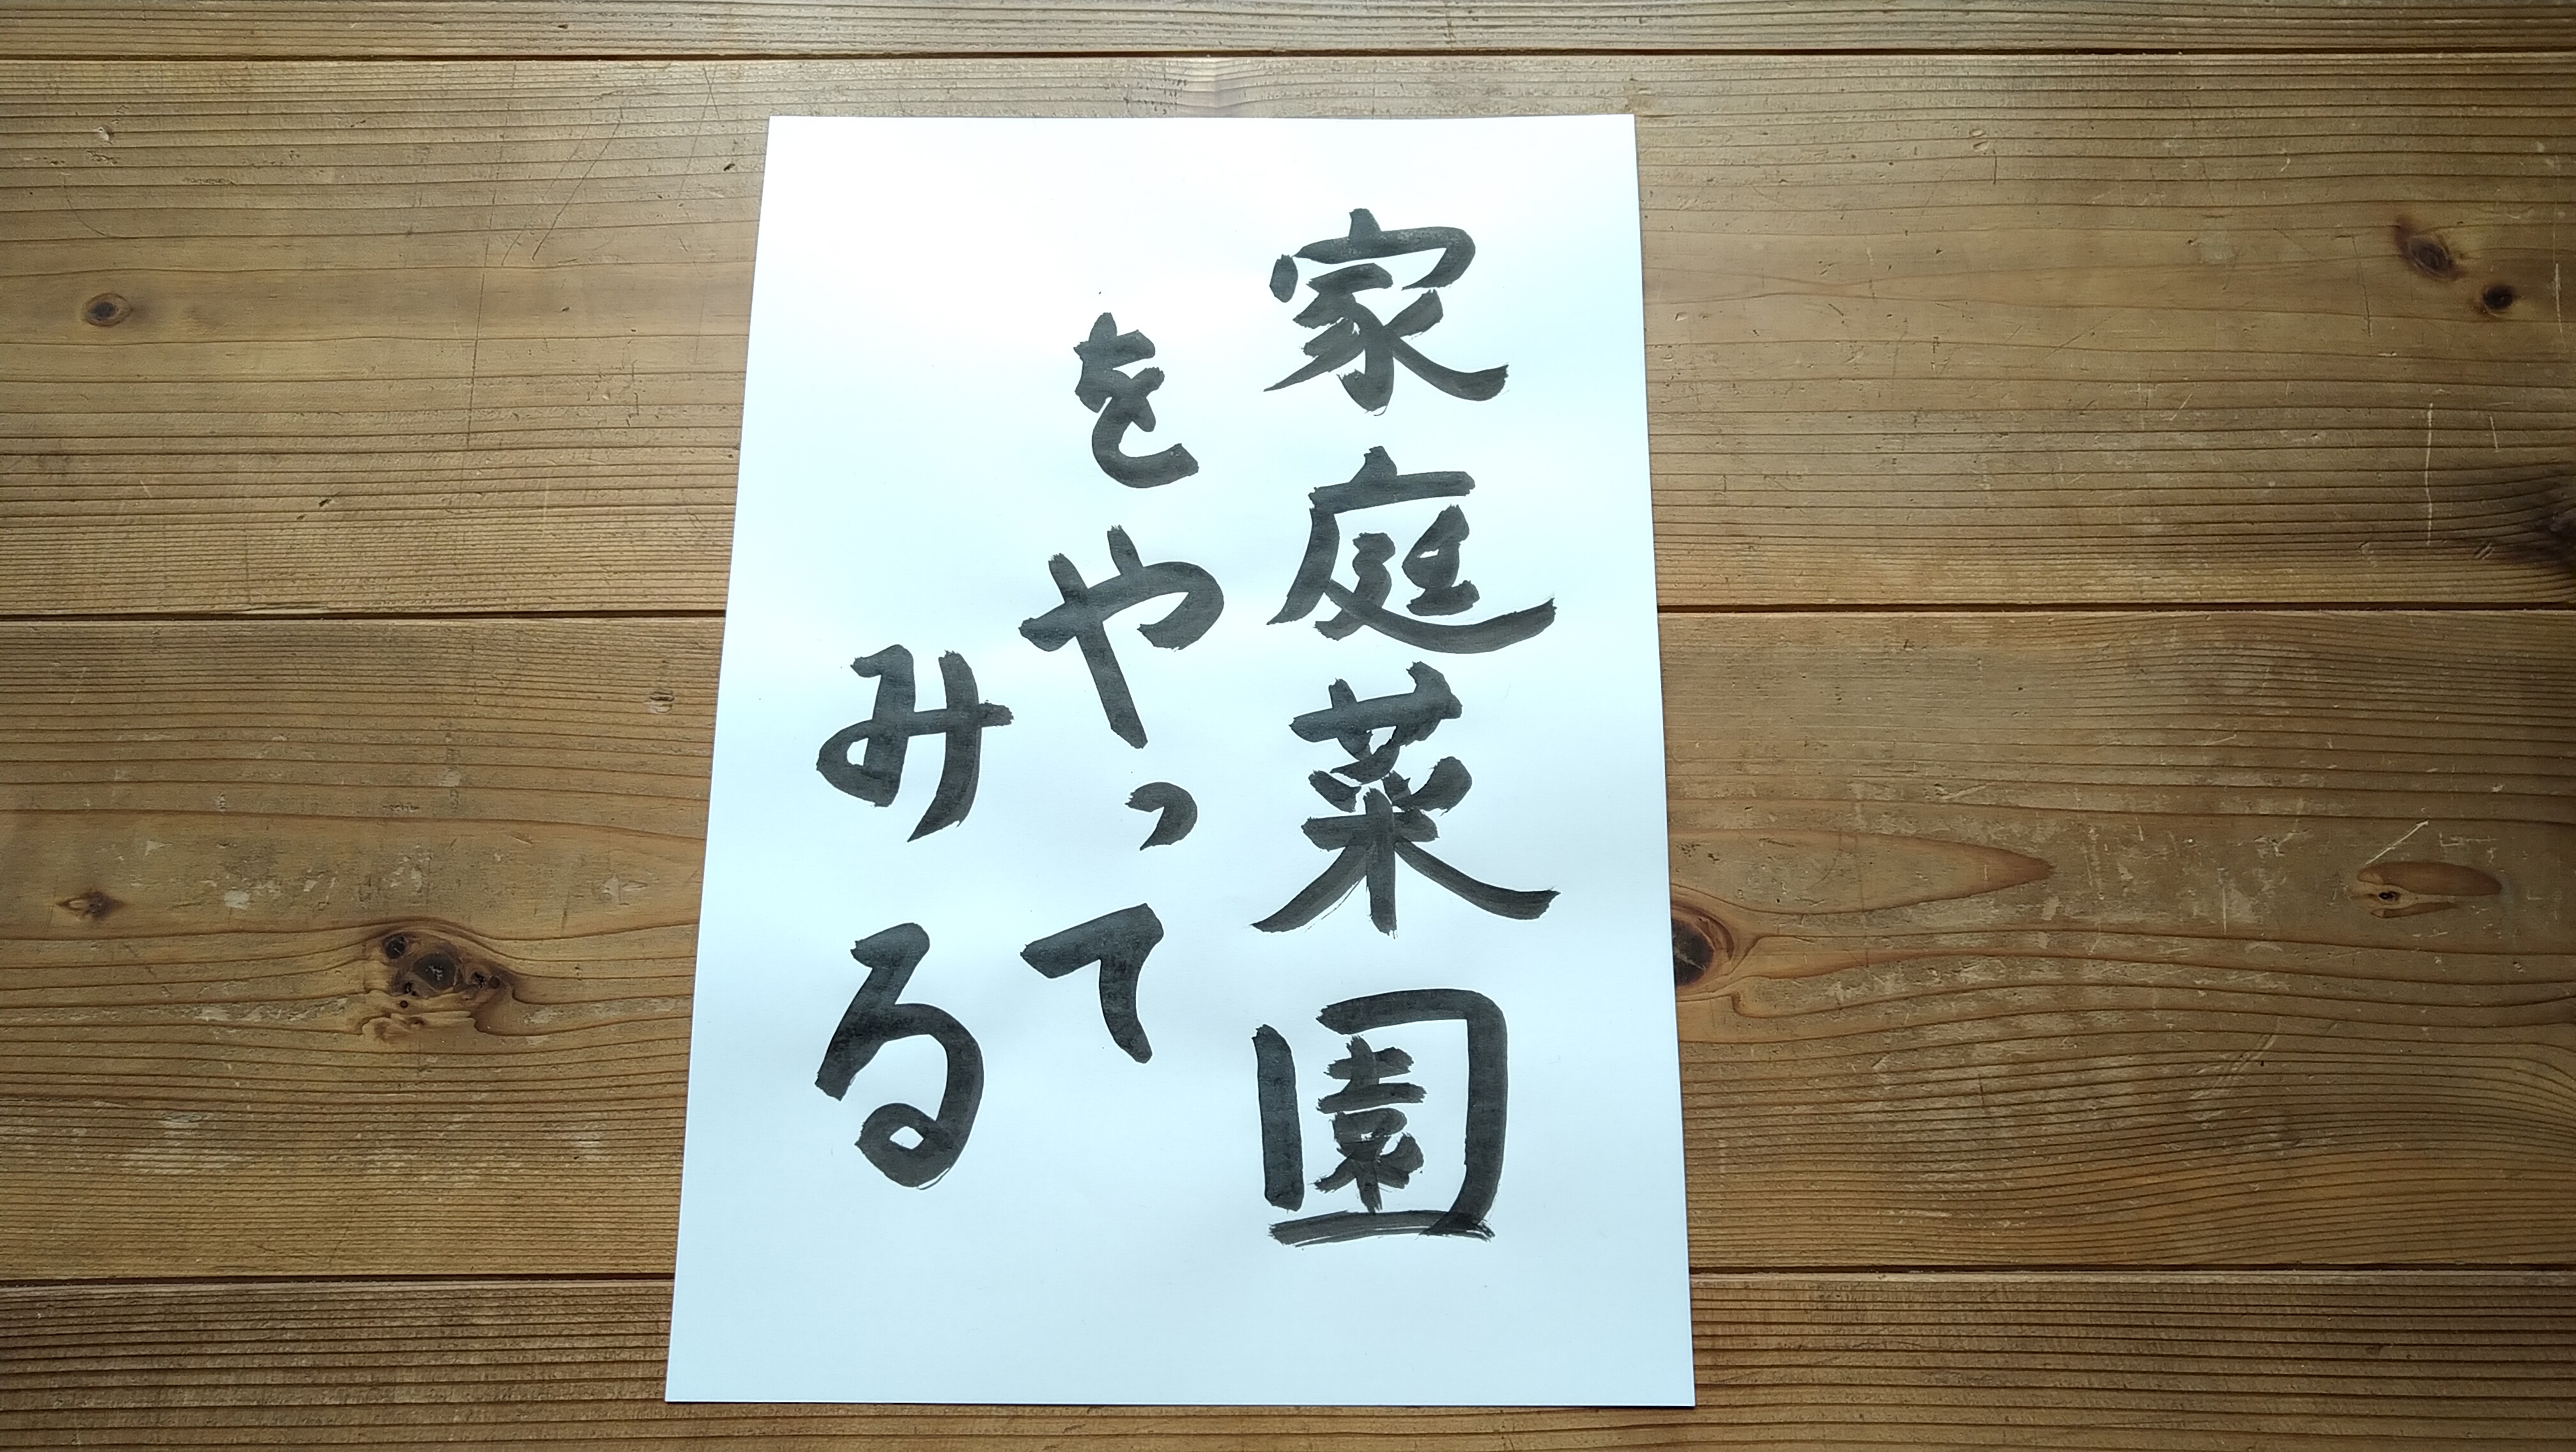 家庭菜園
をやって
みる